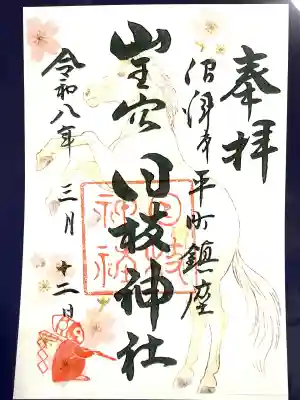 奉拝
沼津市平町鎮座
山王宮 日枝神社
令和八年 三月 十二日
日枝
神社